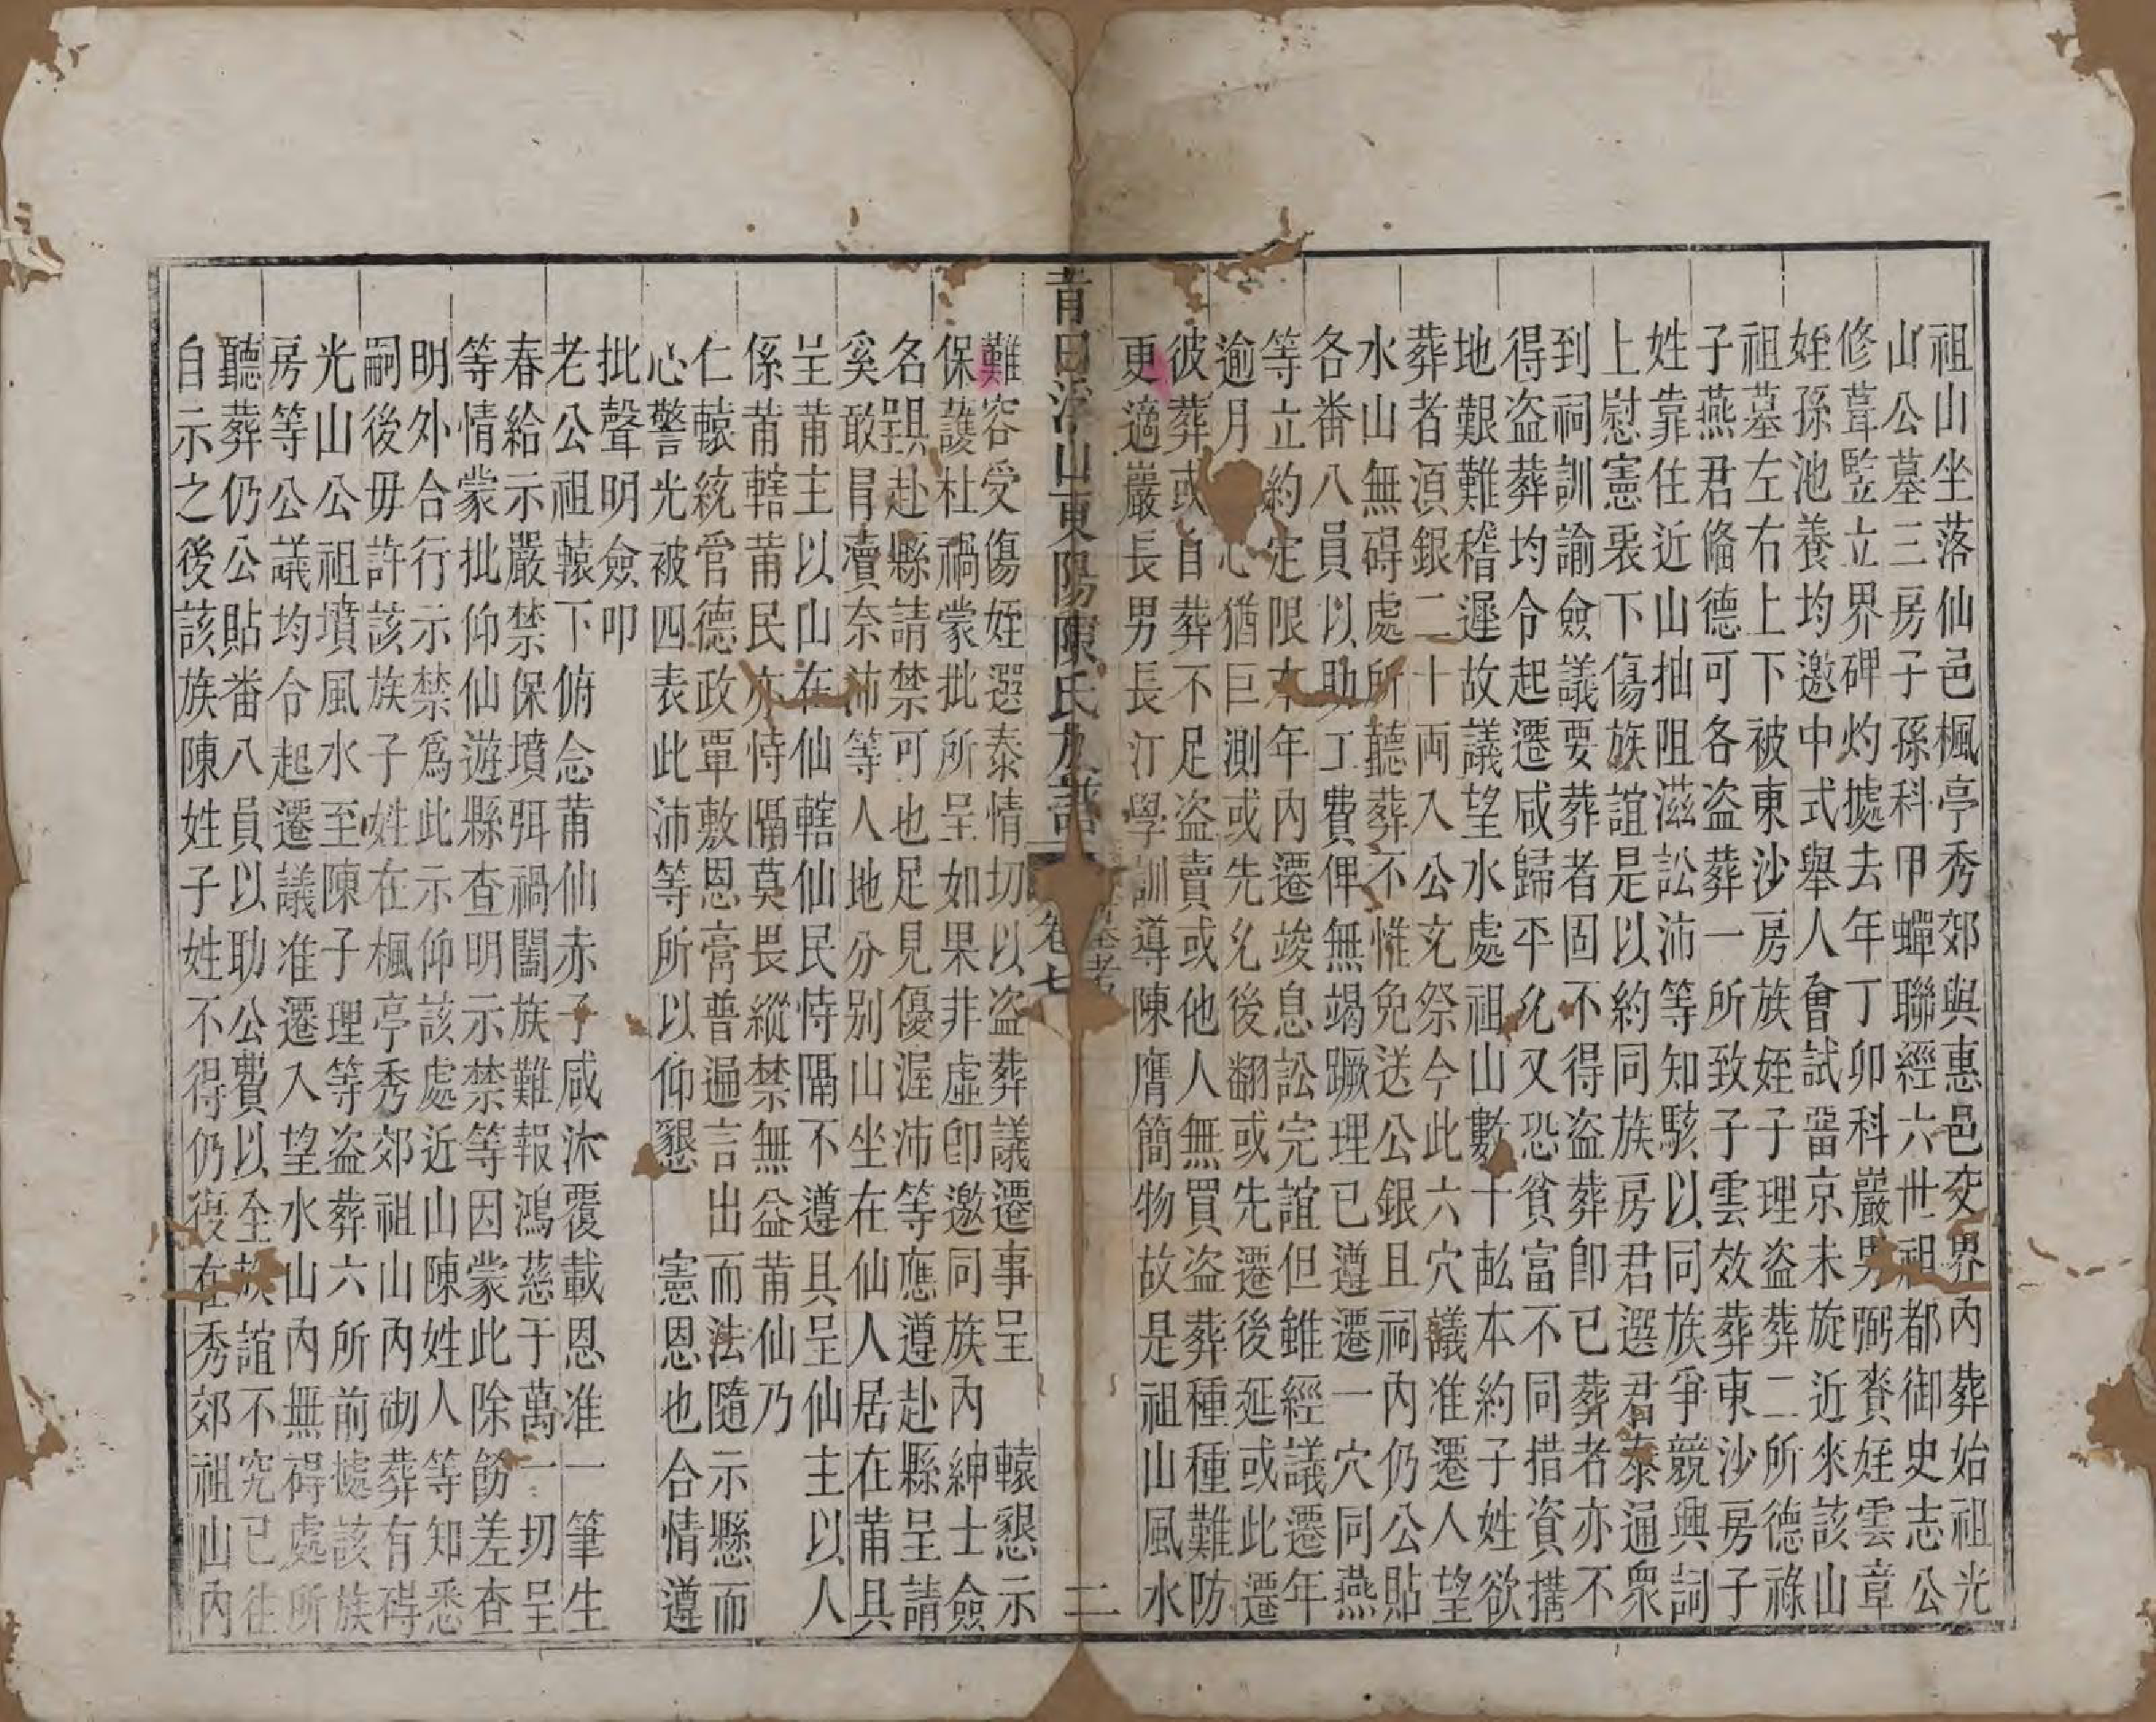 祖山坐落仙邑楓亭秀郊與惠邑交界內葬始祖光
山公墓三房子孫科甲蟬聯經六世祖都御史志公
修葺監立界碑灼據去年丁卯科嚴男弼賚姪雲章
姪孫池養均邀中式舉人會試畱京未旋近來該山
祖墓左右上下被東沙房族姪子理盜葬二所德祿
子燕君脩德可各盜葬一所致子雲效葬東沙房子
姓靠住近山抽阻滋訟沛等知駭以同族爭競興詞
上慰憲裵下傷族誼是以約同族房君選君泰通衆
到祠訓諭僉議要葬者固不得盜葬卽已葬者亦不
得盜葬均令起遷咸歸平允又恐貧富不同措資搆
地艱難稽遲故議望水處祖山數十畝本約子姓欲
葬者湏銀二十両入公充祭今此六穴議准遷人望
水山無碍處所聽葬不惟免送公銀且祠內仍公貼
各畨八員以助工費俾無竭蹶理已遵遷一穴同燕
等立約定限本年內遷竣息訟完誼但雖經議遷年
逾月心猶巨測或先允後翻或先遷後延或此遷
彼葬或自葬不足盜賣或他人無買盜葬種種難防
更適嚴長男長汀學訓導陳膺簡物故是祖山風水
昔日浮山東陽陳氏族譜 卷七 二
難容受傷姪選泰情切以盜葬議遷事呈 轅懇示
保護杜禍蒙批所呈如果非虛卽邀同族內紳士僉
名跟赴縣請禁可也足見優渥沛等應遵赴縣呈請
奚敢冒瀆奈沛等人地分别山坐在仙人居在莆具
呈莆主以山在仙轄仙民恃隔不遵具呈仙主以人
係莆轄莆民亦恃隔莫畏縱禁無益莆仙乃
仁轅統官德政覃敷恩膏普遍言出而法隨示懸而
心警光被四表此沛等所以仰懇 憲恩也合情遵
批聲明僉叩
老公祖轅下俯念莆仙赤子咸沐覆載恩准一筆生
春給示嚴禁保墳弭禍闔族難報鴻慈于萬一切呈
等情蒙批仰仙遊縣查明示禁等因蒙此除飭差查
明外合行示禁爲此示仰該處近山陳姓人等知悉
嗣後毋許該族子姓在楓亭秀郊祖山內砌葬有碍
光山公祖墳風水至陳子理等盜葬六所前據該族
房等公議均令起遷議准遷入望水山內無碍處所
聽葬仍公貼畨八員以助公費以全族誼不究已往
自示之後該族陳姓子姓不得仍復在秀郊祖山內